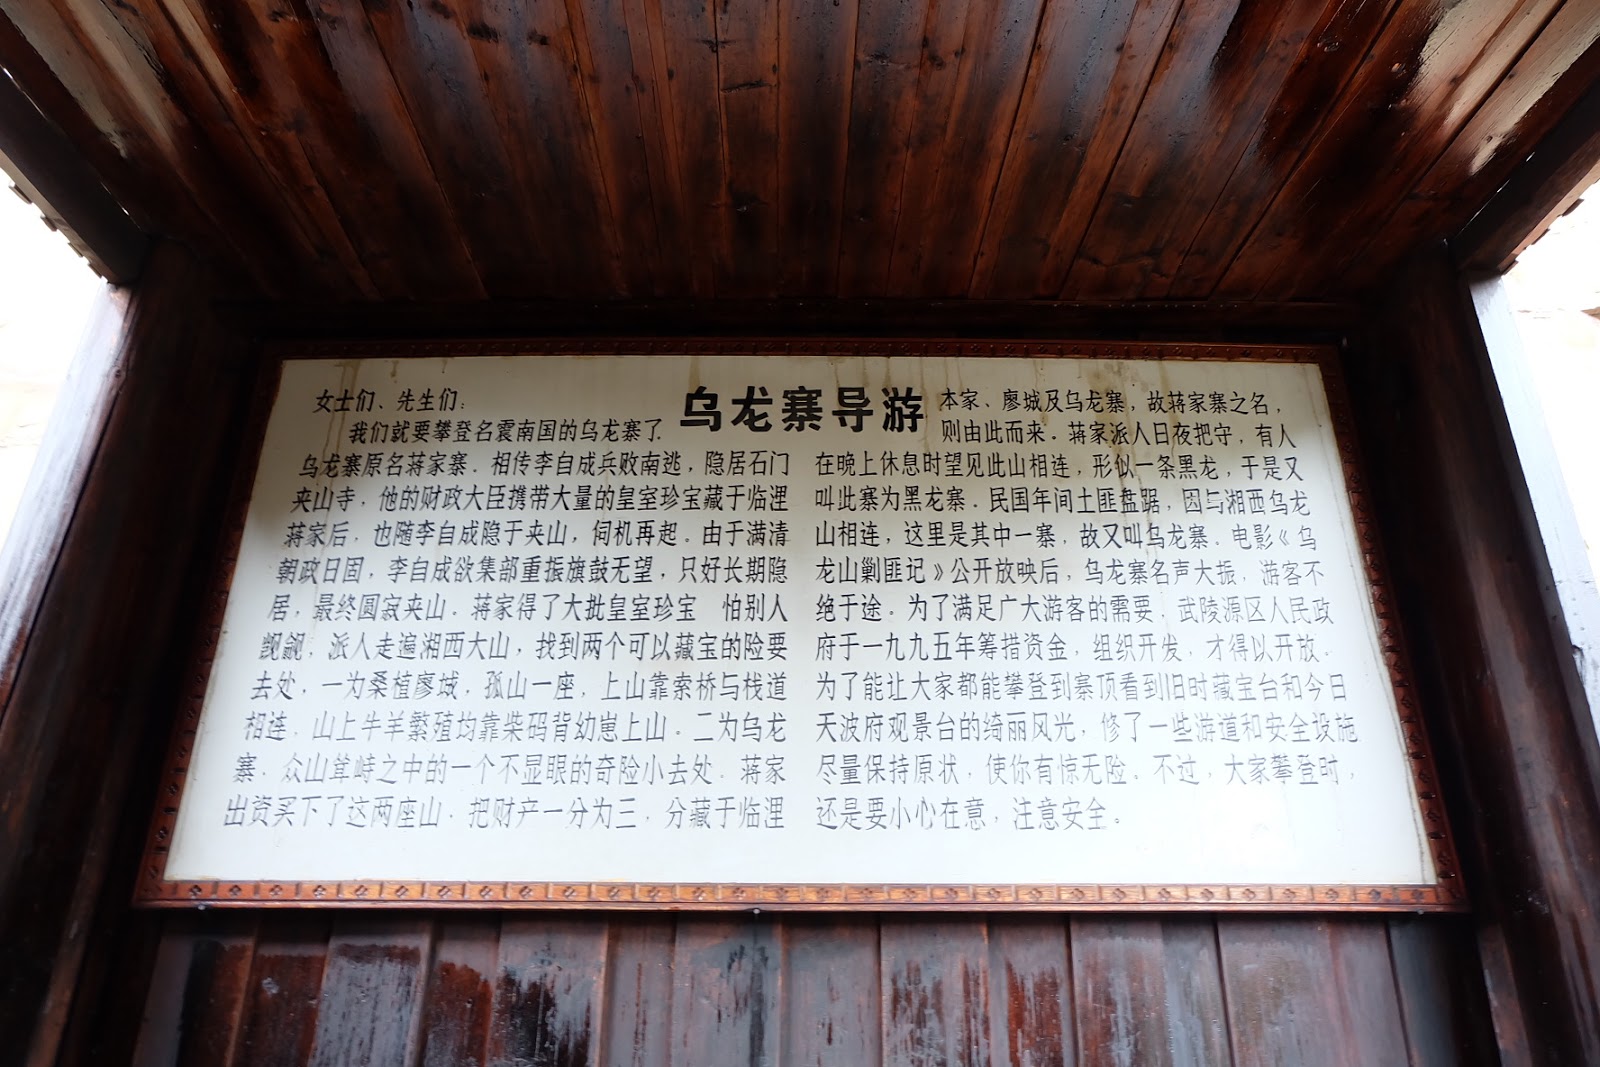 乌龙寨导游
女士们、先生们：
我们就要攀登名震南国的乌龙寨了.
乌龙寨原名蒋家寨．相传李自成兵败南逃，隐居石门
夹山寺．他的财政大臣携带大量的皇室珍宝藏于临澧
蒋家后，也随李自成隐于夹山，伺机再起．由于满清
朝政日固，李自成欲集部重振旗鼓无望，只好长期隐
居，最终圆寂夹山．蒋家得了大批皇室珍宝 怕别人
觊觎，派人走遍湘西大山，找到两个可以藏宝的险要
去处，一为桑植廖城，孤山一座，上山靠索桥与栈道
相连，山上牛羊繁殖均靠柴码背幼崽上山．二为乌龙
寨．众山耸峙之中的一个不显眼的奇险小去处．蒋家
出资买下了这两座山．把财产一分为三，分藏于临澧
本家、廖城及乌龙寨，故蒋家寨之名，
则由此而来．蒋家派人日夜把守，有人
在晚上休息时望见此山相连，形似一条黑龙，于是又
叫此寨为黑龙寨．民国年间土匪盘踞，因与湘西乌龙
山相连，这里是其中一寨，故又叫乌龙寨．电影《乌
龙山剿匪记》公开放映后，乌龙寨名声大振，游客不
绝于途．为了满足广大游客的需要，武陵源区人民政
府于一九九五年筹措资金，组织开发，才得以开放．
为了能让大家都能攀登到寨顶看到旧时藏宝台和今日
天波府观景台的绮丽风光，修了一些游道和安全设施
尽量保持原状，使你有惊无险．不过，大家攀登时，
还是要小心在意，注意安全。